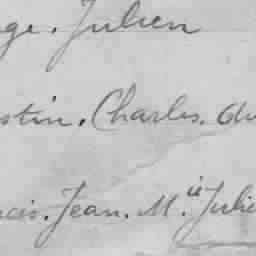 ge. Julien
stin. Charles. du
ncis. Jean. M.ie Julie